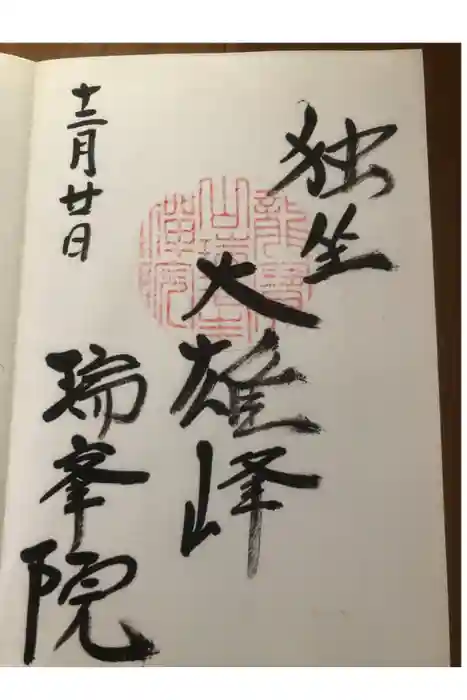 独坐
大雄峰
瑞峯院
十二月廿日